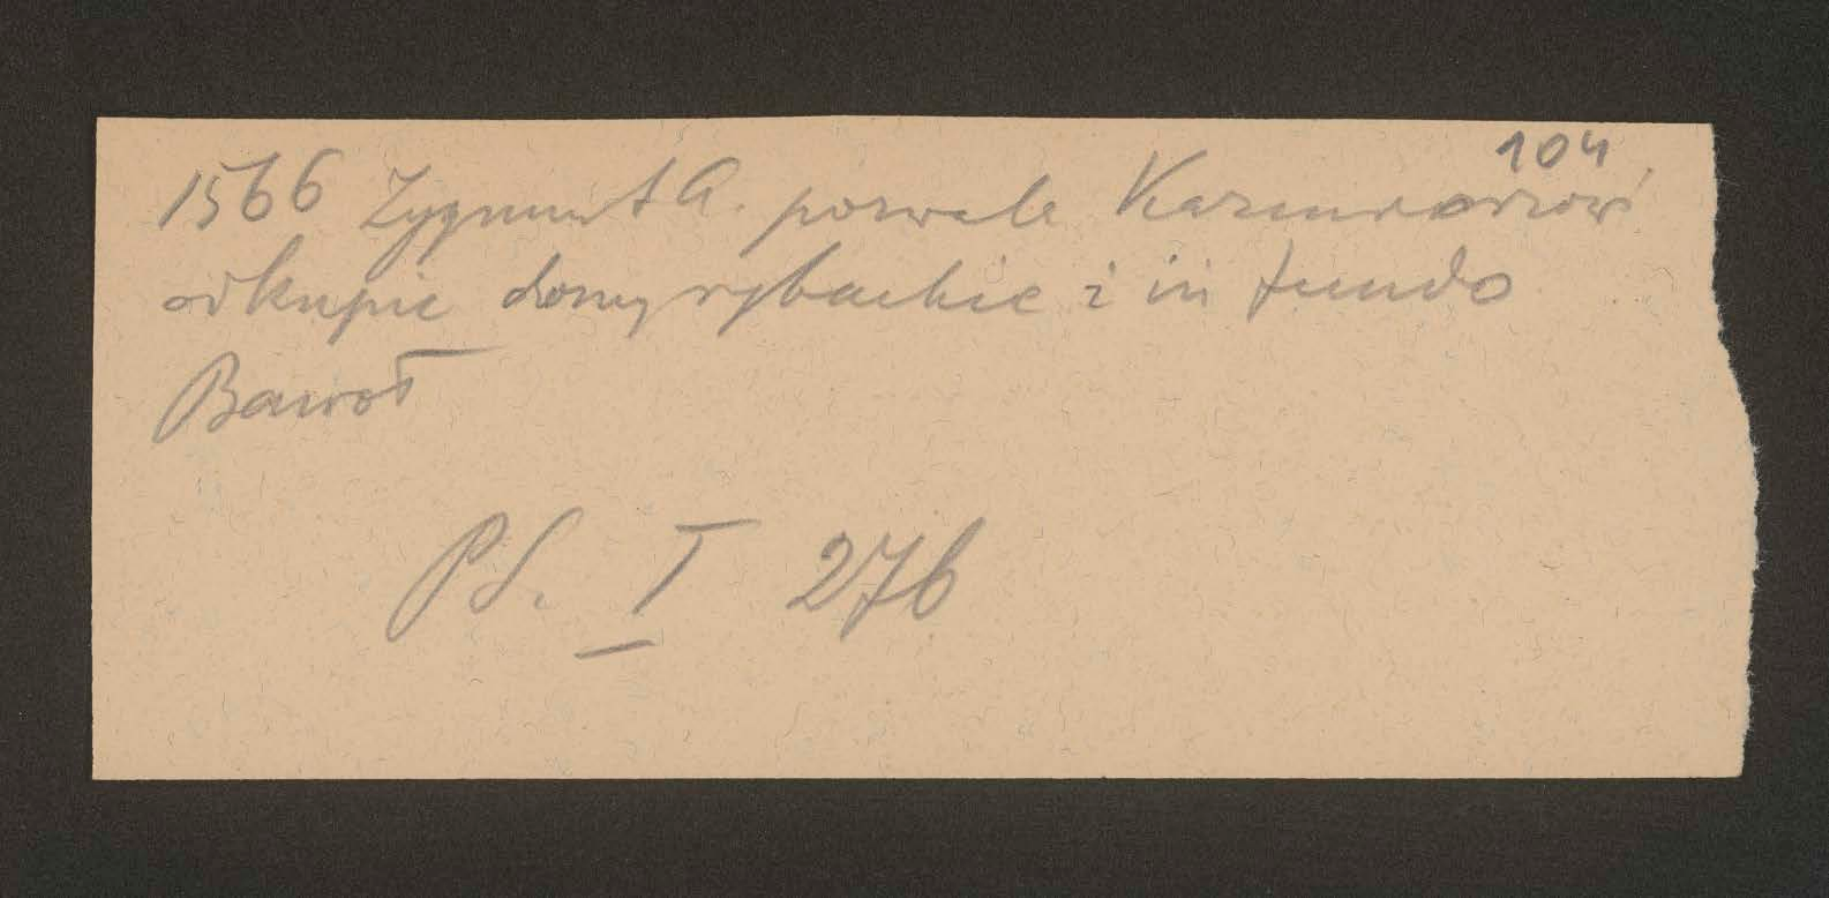 104
1566 Zygmunt A. pozwala Kazimierzowi
odkupić domy rybackie i in fundo
Bawół
PS. I 276